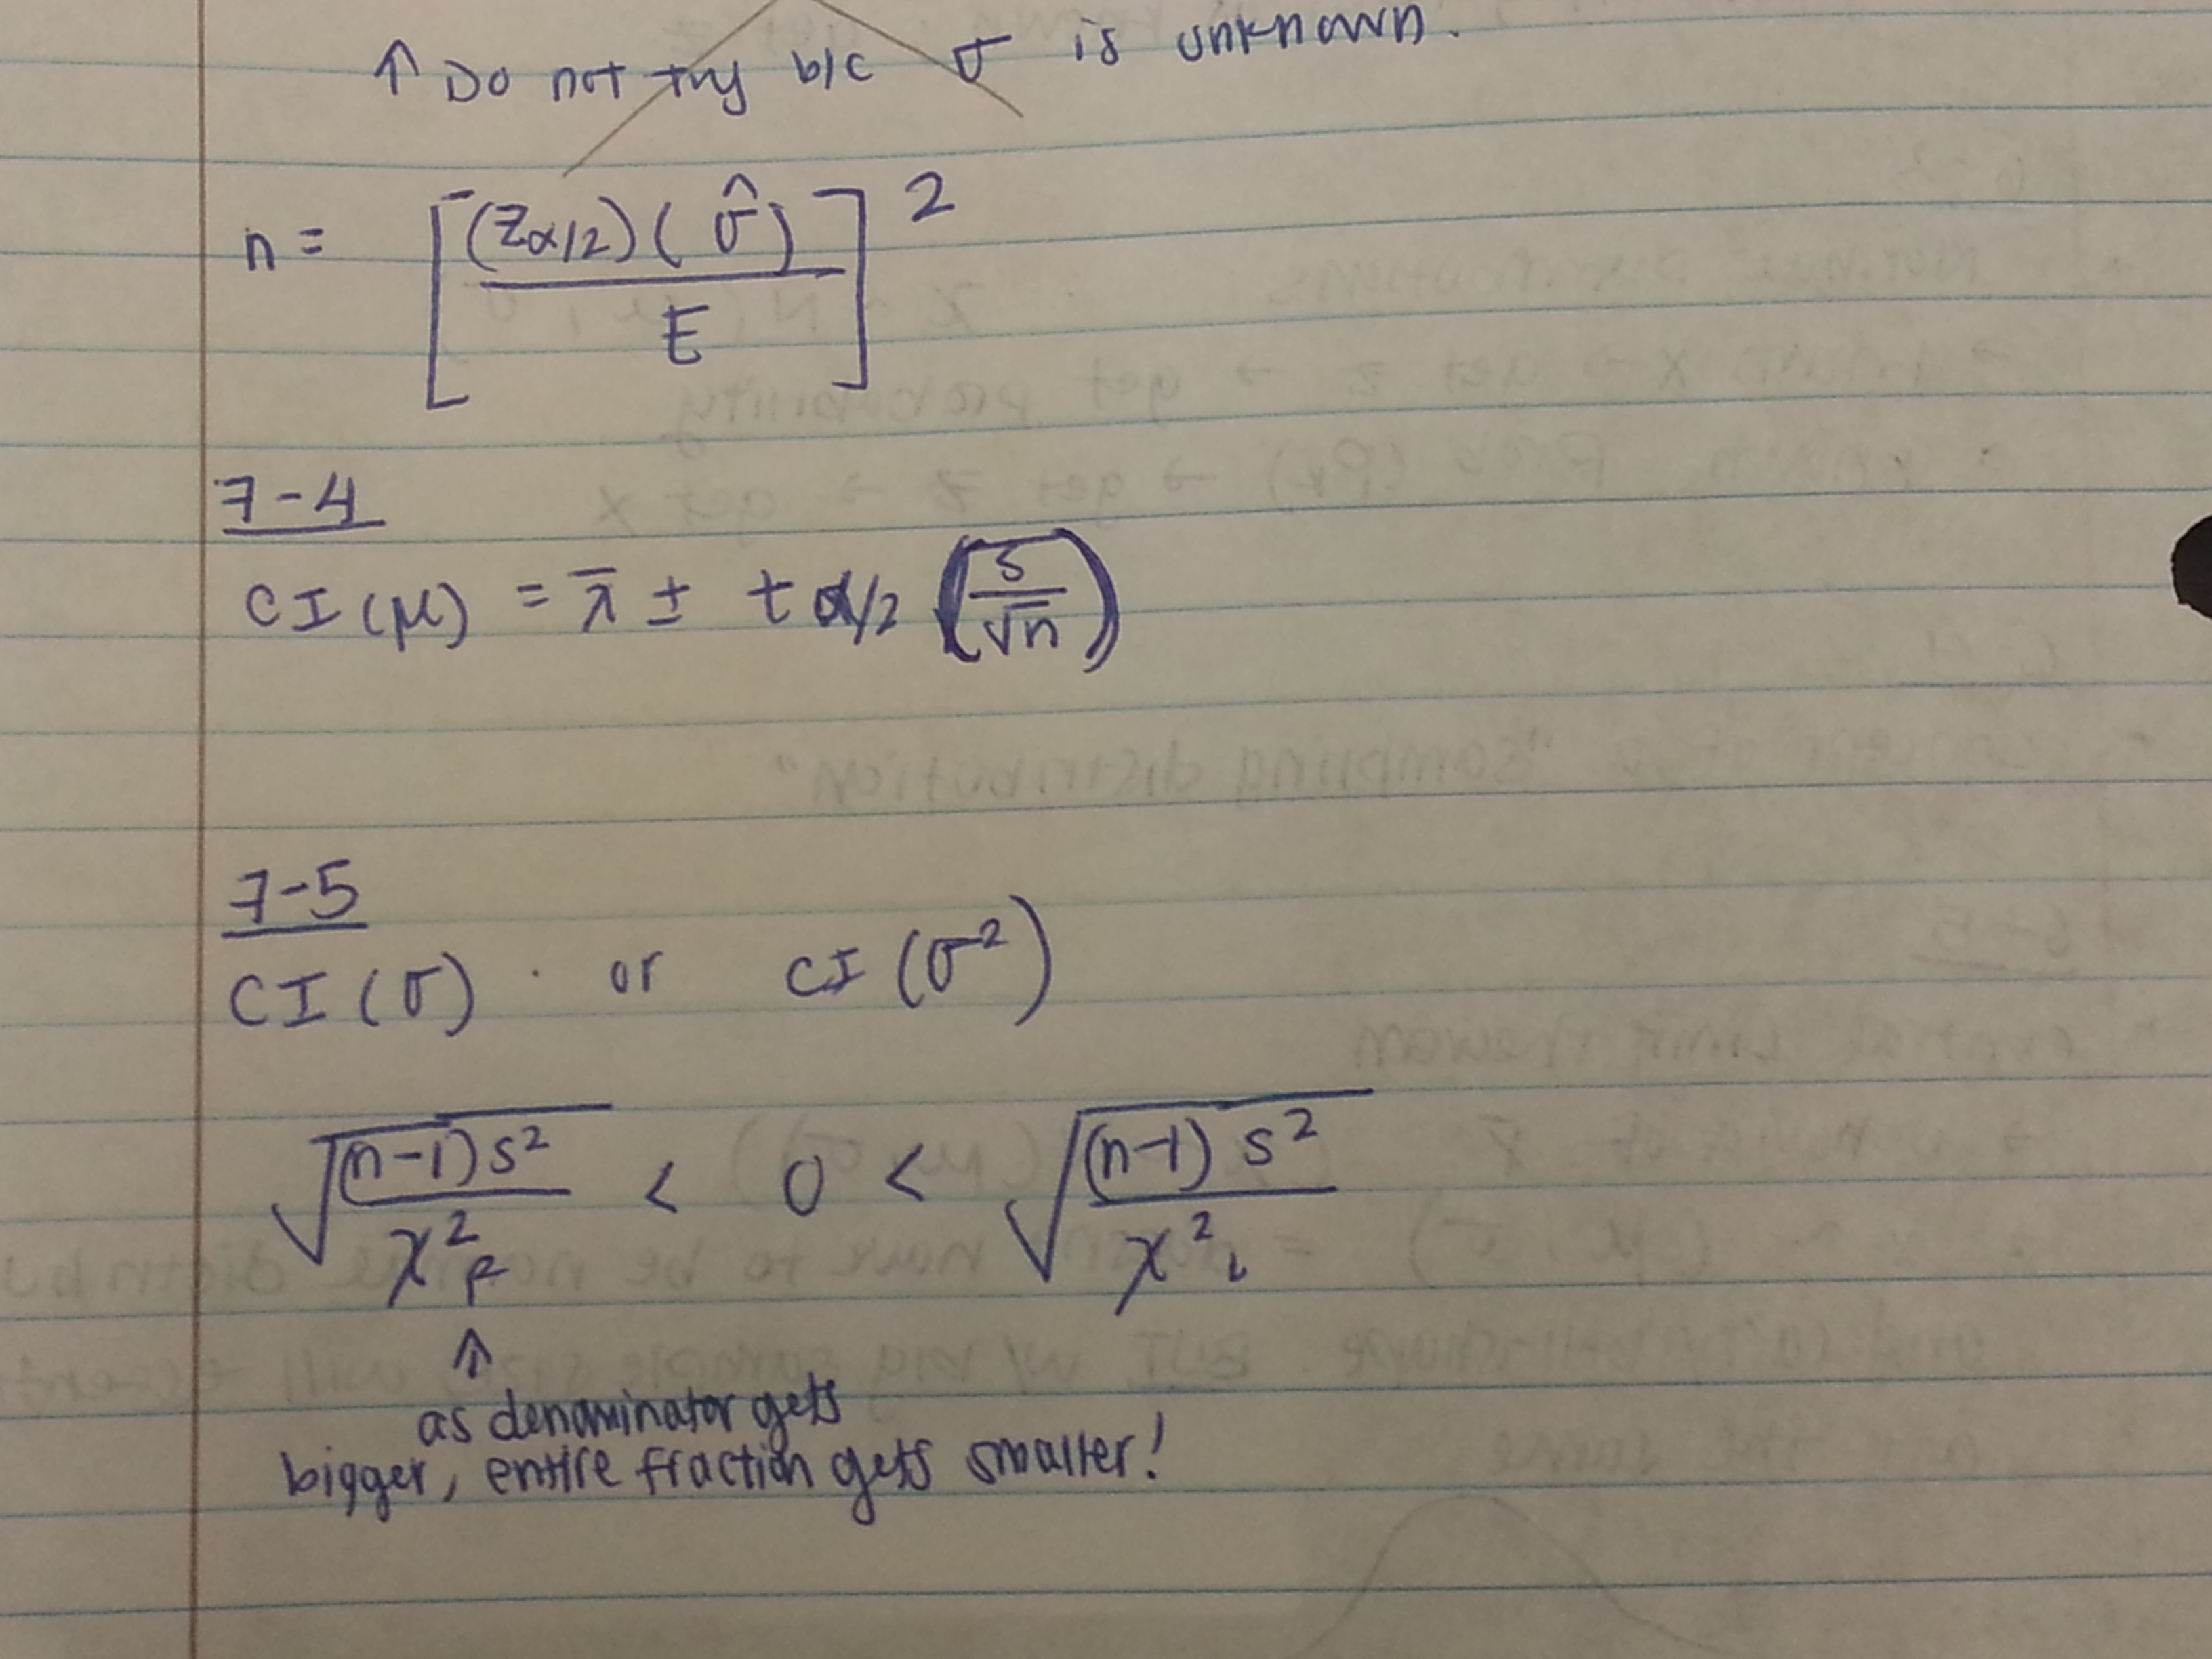 ↑ Do not try b/c σ is unknown.
n = [ (Zα/2)( σ̂ ) / E ]²
7-4
CI (μ) = x̄ ± t α/2 ( s / √n )
7-5
CI (σ) . or CI (σ²)
√( (n-1) s² / χ²R ) < σ < √( (n-1) s² / χ²L )
↑
as denominator gets
bigger, entire fraction gets smaller!